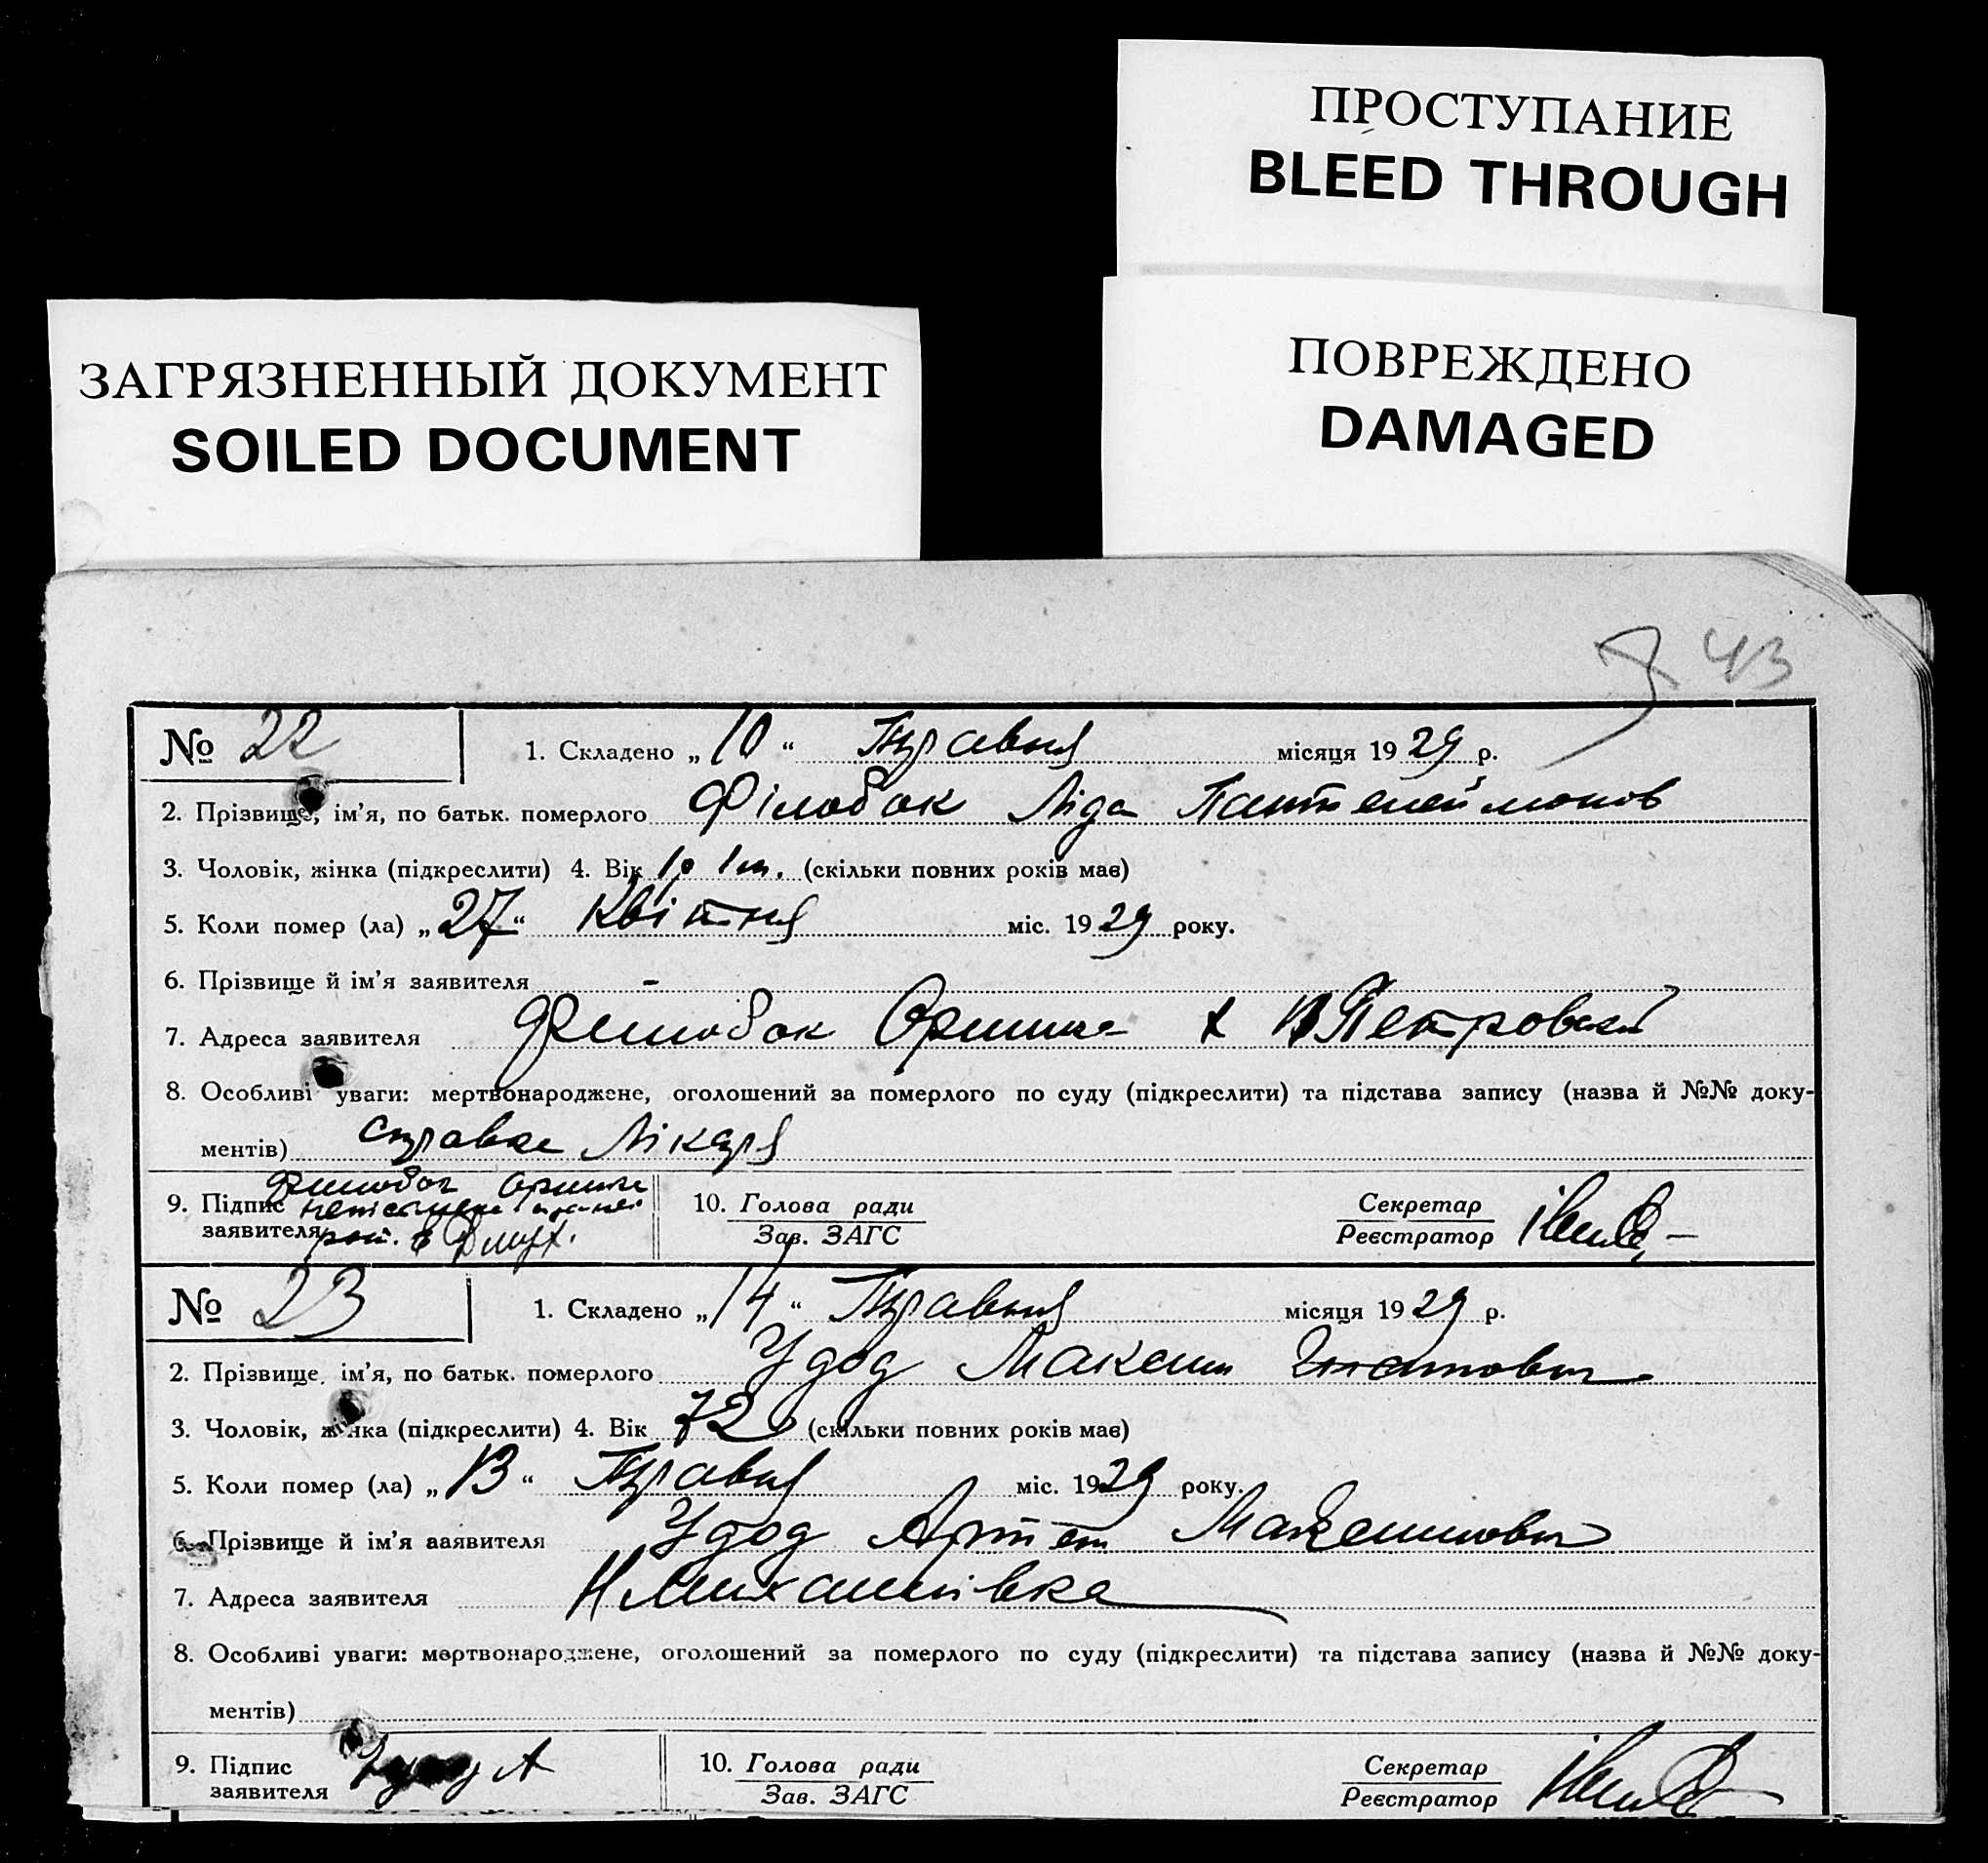 ПРОСТУПАНИЕ
BLEED THROUGH
ЗАГРЯЗНЕННЫЙ ДОКУМЕНТ
SOILED DOCUMENT
ПОВРЕЖДЕНО
DAMAGED
43
№ 22 1. Складено „10“ Травня місяця 1929 р.
2. Прізвище, ім'я, по батьк. померлого Філобок Ліда Пантелеймонов
3. Чоловік, жінка (підкреслити) 4. Вік 1р 1м. (скільки повних років мав)
5. Коли помер (ла) „27“ Квітня міс. 1929 року.
6. Прізвище й ім'я заявителя -
7. Адреса заявителя Філобок Орина х Петровский
8. Особливі уваги: мертвонароджене, оголошений за померлого по суду (підкреслити) та підстава запису (назва й №№ доку-
ментів) справка Лікаря
9. Підпис заявителя Філобок Орина
10. Голова ради
Зав. ЗАГС
Секретар
Реєстратор
№ 23 1. Складено „14“ Травня місяця 1929 р.
2. Прізвище, ім'я, по батьк. померлого Удод Максим Игнатович
3. Чоловік, жінка (підкреслити) 4. Вік 72 (скільки повних років мав)
5. Коли помер (ла) „13“ Травня міс. 1929 року.
6. Прізвище й ім'я заявителя Удод Артем Максимович
7. Адреса заявителя Н Михайлівка
8. Особливі уваги: мертвонароджене, оголошений за померлого по суду (підкреслити) та підстава запису (назва й №№ доку-
ментів)
9. Підпис заявителя А
10. Голова ради
Зав. ЗАГС
Секретар
Реєстратор